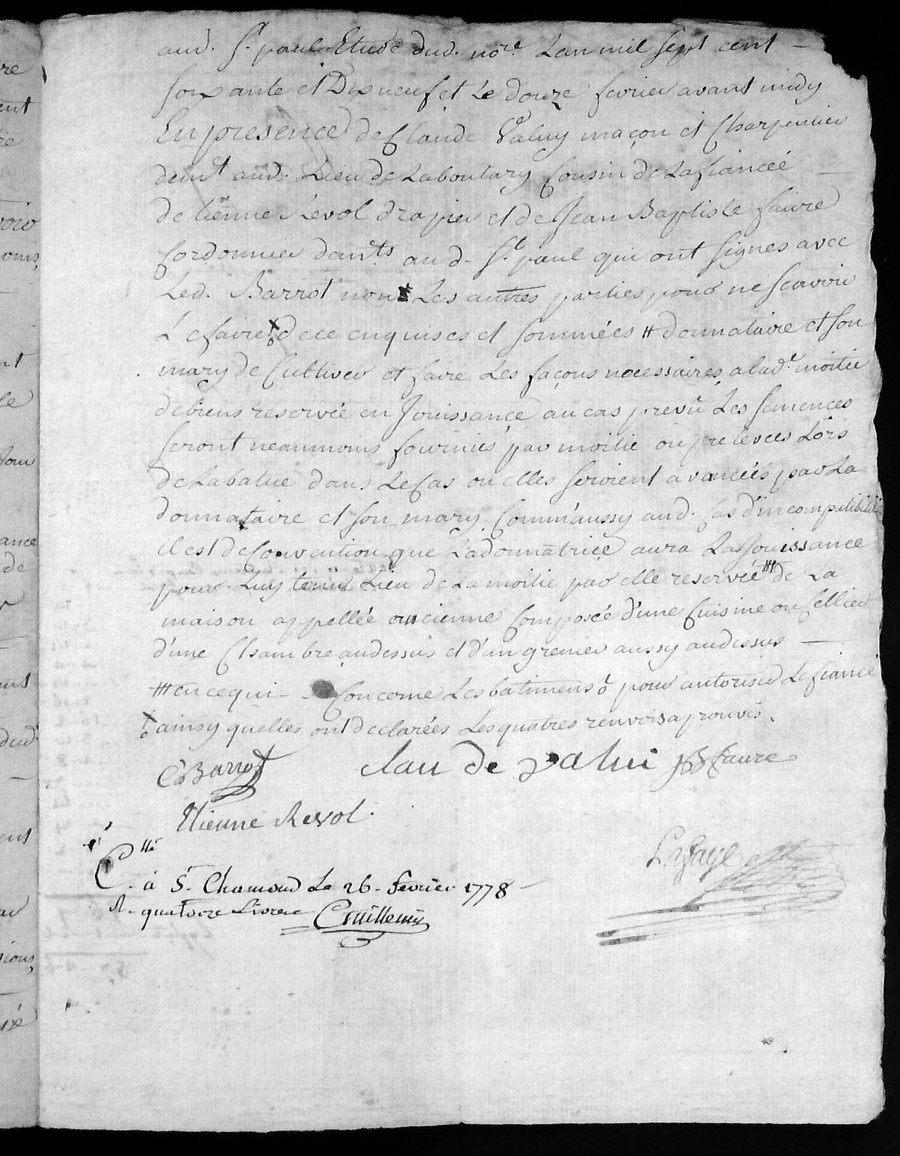 aud. St. paul Etude dud. nore Lan mil sept cent
soixante et Dix neuf et Le douze fevrier avant midy
En presence de Claude Valuy maçon et Charpentier
demt aud. Lieu de Laboutary Cousin de La fiancéé
de Etienne Revol drapier et de Jean Baptiste faure
Cordonnier dants aud. St. paul qui ont signes avec
Led. Barrot non Les autres parties pour ne scavoir
Le faire de ce enquises et sommées # donnataire et son
mary de Cultiver et faire Les façons necessaires a lade moitie
de biens reservée en Jouissance au cas prevû Les semences
seront neanmoins fournies par moitie ou prelevees Lors
de La batue dans Le Cas ou elles seroient avancéés par La
donnataire et son mary, Comm'aussy aud. Cas d'incompatibilité
il est de Convention que La donnatrice aura La Jouissance
pour Luy tenir Lieu de La moitie par elle reservéé # de La
maison appelléé ancienne Composée d'une Cuisine ou Cellier
d'une Chambre au dessus et d'un grenier aussy au dessus
# en ce qui Concerne Les batimens o pour autorisee Le fiancé
ainsy quelles ont declarées Les quatres renvois aprouvés.
CBarrot clau de valui JB faure
Etienne Revol.
Lafaye
C.lle à St. Chamond Le 26 fevrier 1778
R. quatorze Livres Guillemin